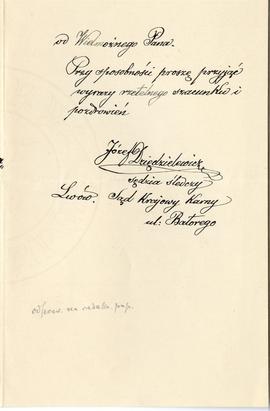 od Wielmożnego Pana.
Przy sposobności proszę przyjąć
wyrazy rzetelnego szacunku i
pozdrowień
Józef Dziędzielewicz
sędzia śledczy
Lwów. Sąd Krajowy Karny
ul: Batorego